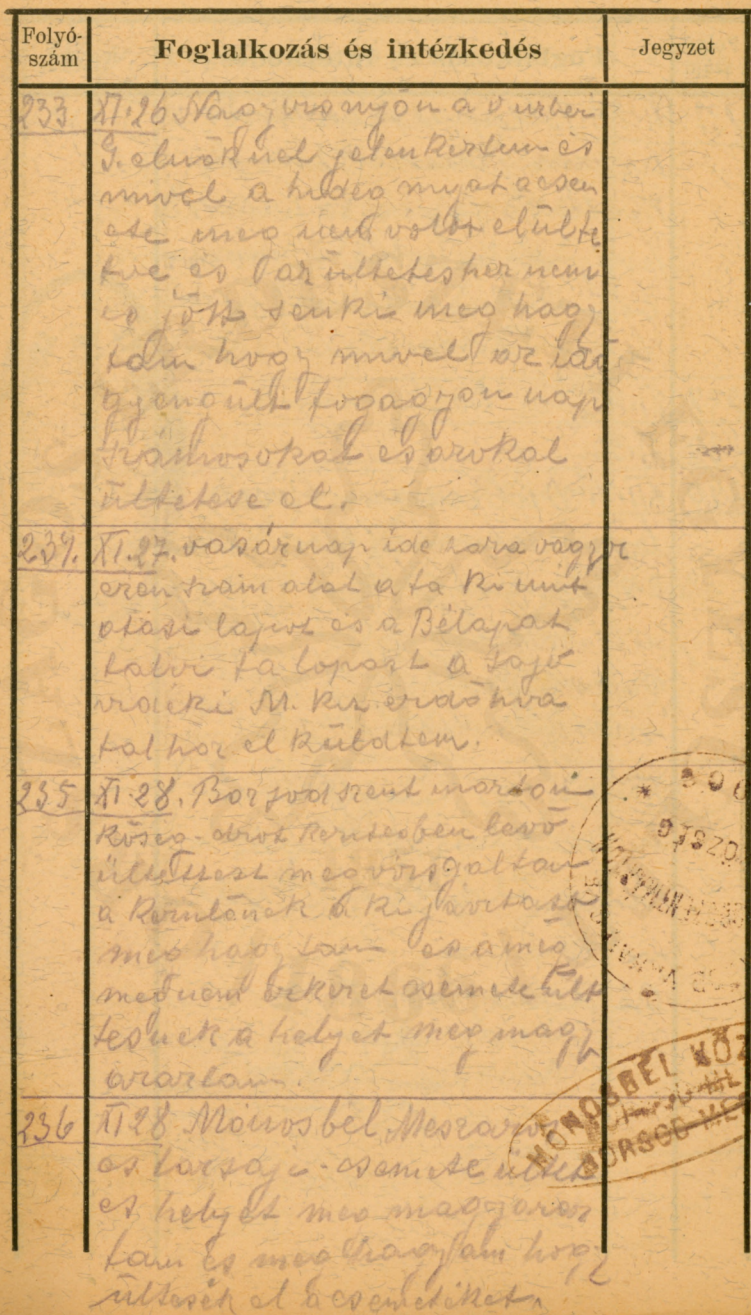 Folyó-
szám
Foglalkozás és intézkedés
Jegyzet
233. XI.26 Nagyvisnyón a
G. elnöknél jelenkeztem és
mivel a hideg myat a csem
ete meg nem volt elülte
tve és az ültetésher nem
is jött senki meg hagy
tam hogy mivel az idő
gyengült fogagyon nap
számosokat és azokal
ültetese el.
234. XI.27. vasárnap ide
szám alat a ta ki mut
atási lapot és a Bélapát
falvi ta lopást a sajó
vidéki M. kir. erdőhiva
talhoz el küldtem.
235 XI.28. Borsodszentmárton
község drot keritesben levő
ültettest megvizsgáltam
a kerülőnek a ki javitást
meg hagytam és a még
meg nem érkezet csemete ült
tesnek a helyét meg magy
arartam.
236 XI 28 Mónosbél Meszaros
és társaji csemete ültet
es helyét meg magyaraz
tam és meg hagytam hogy
ültesék el a csemetéket.
MÓNOSBÉL KÖZ
BORSOD ME